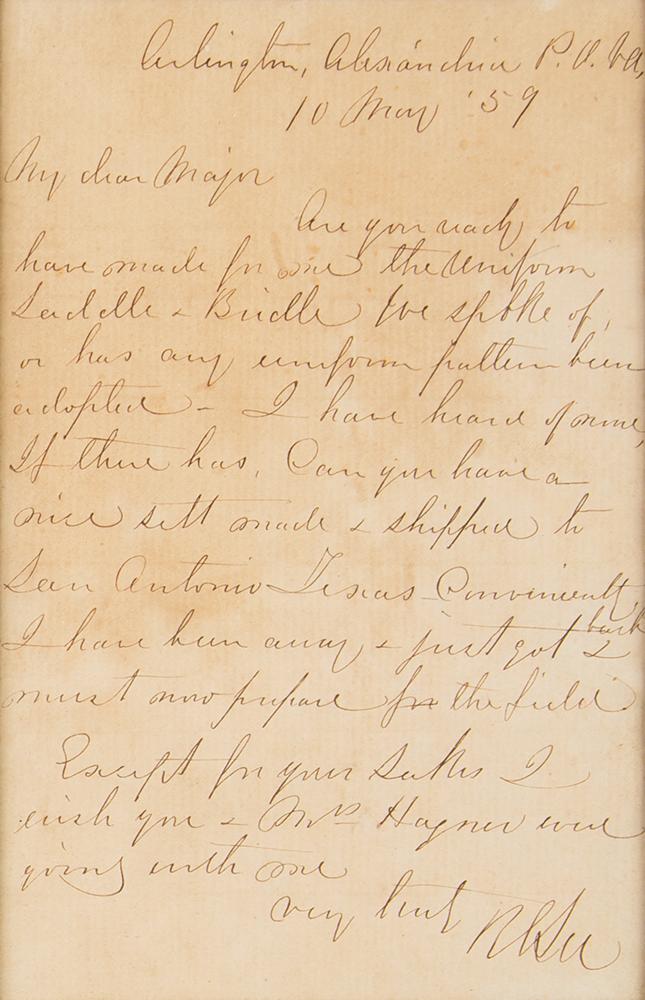 Arlington, Alexandria P.O. Va,
10 May '59
My dear Major
Are you ready to
have made for me the Uniform
Saddle & Bridle we spoke of,
or has any uniform pattern been
adopted - I have heard of none,
If there has, Can you have a
nice sett made & shipped to
San Antonio Texas Conveniently
I have been away & just got back &
must now prepare for the field
Except for your sakes I
wish you & Mrs Hagner were
going with me
very truly
R E Lee